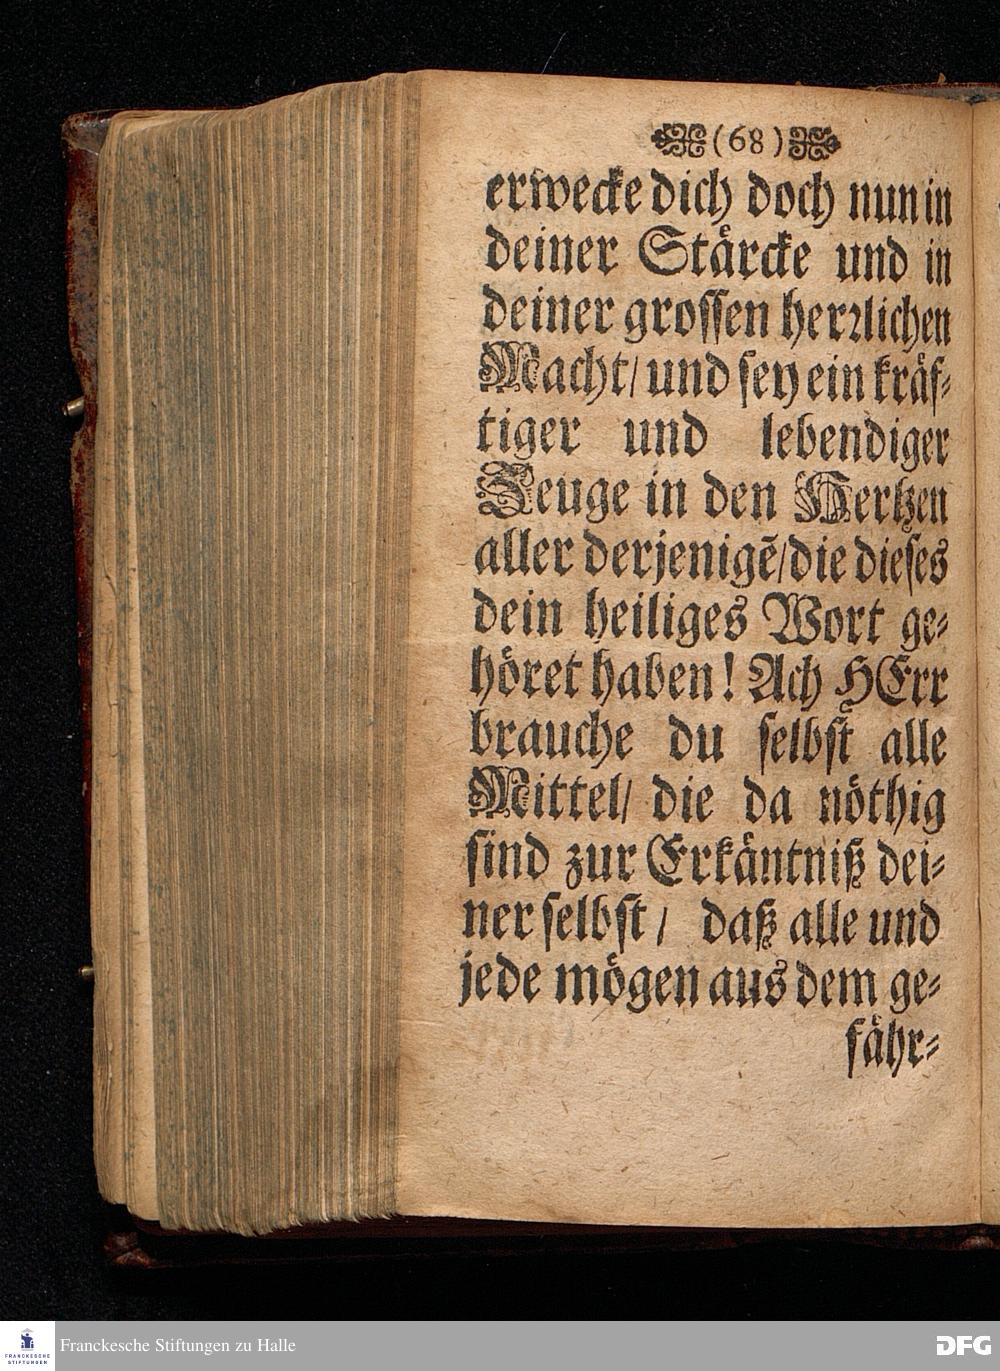 (68)
erwecke dich doch nun in
deiner Stärcke und in
deiner grossen herrlichen
Macht/ und sey ein kräf⸗
tiger und lebendiger
Zeuge in den Hertzen
aller derjenigẽ/die dieses
dein heiliges Wort ge⸗
höret haben! Ach HErr
brauche du selbst alle
Mittel/ die da nöthig
sind zur Erkäntniß dei⸗
ner selbst/ daß alle und
jede mögen aus dem ge⸗
fähr⸗
FRANCKESCHE
STIFTUNGEN
Franckesche Stiftungen zu Halle
DFG